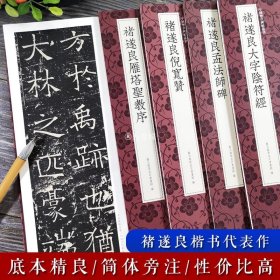 方於禹跡也猶
大林之匹豪端
褚遂良雁塔聖教序
褚遂良倪寬贊
褚遂良孟法師碑
褚遂良大字陰符經
褚遂良楷书代表作
底本精良/简体旁注/性价比高